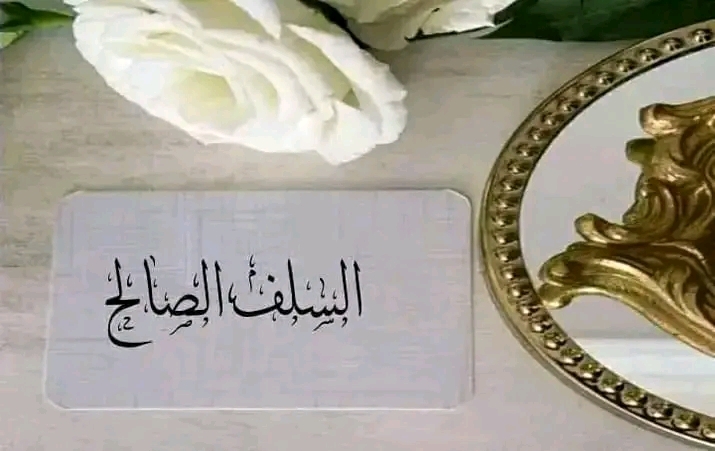 السلف الصالح